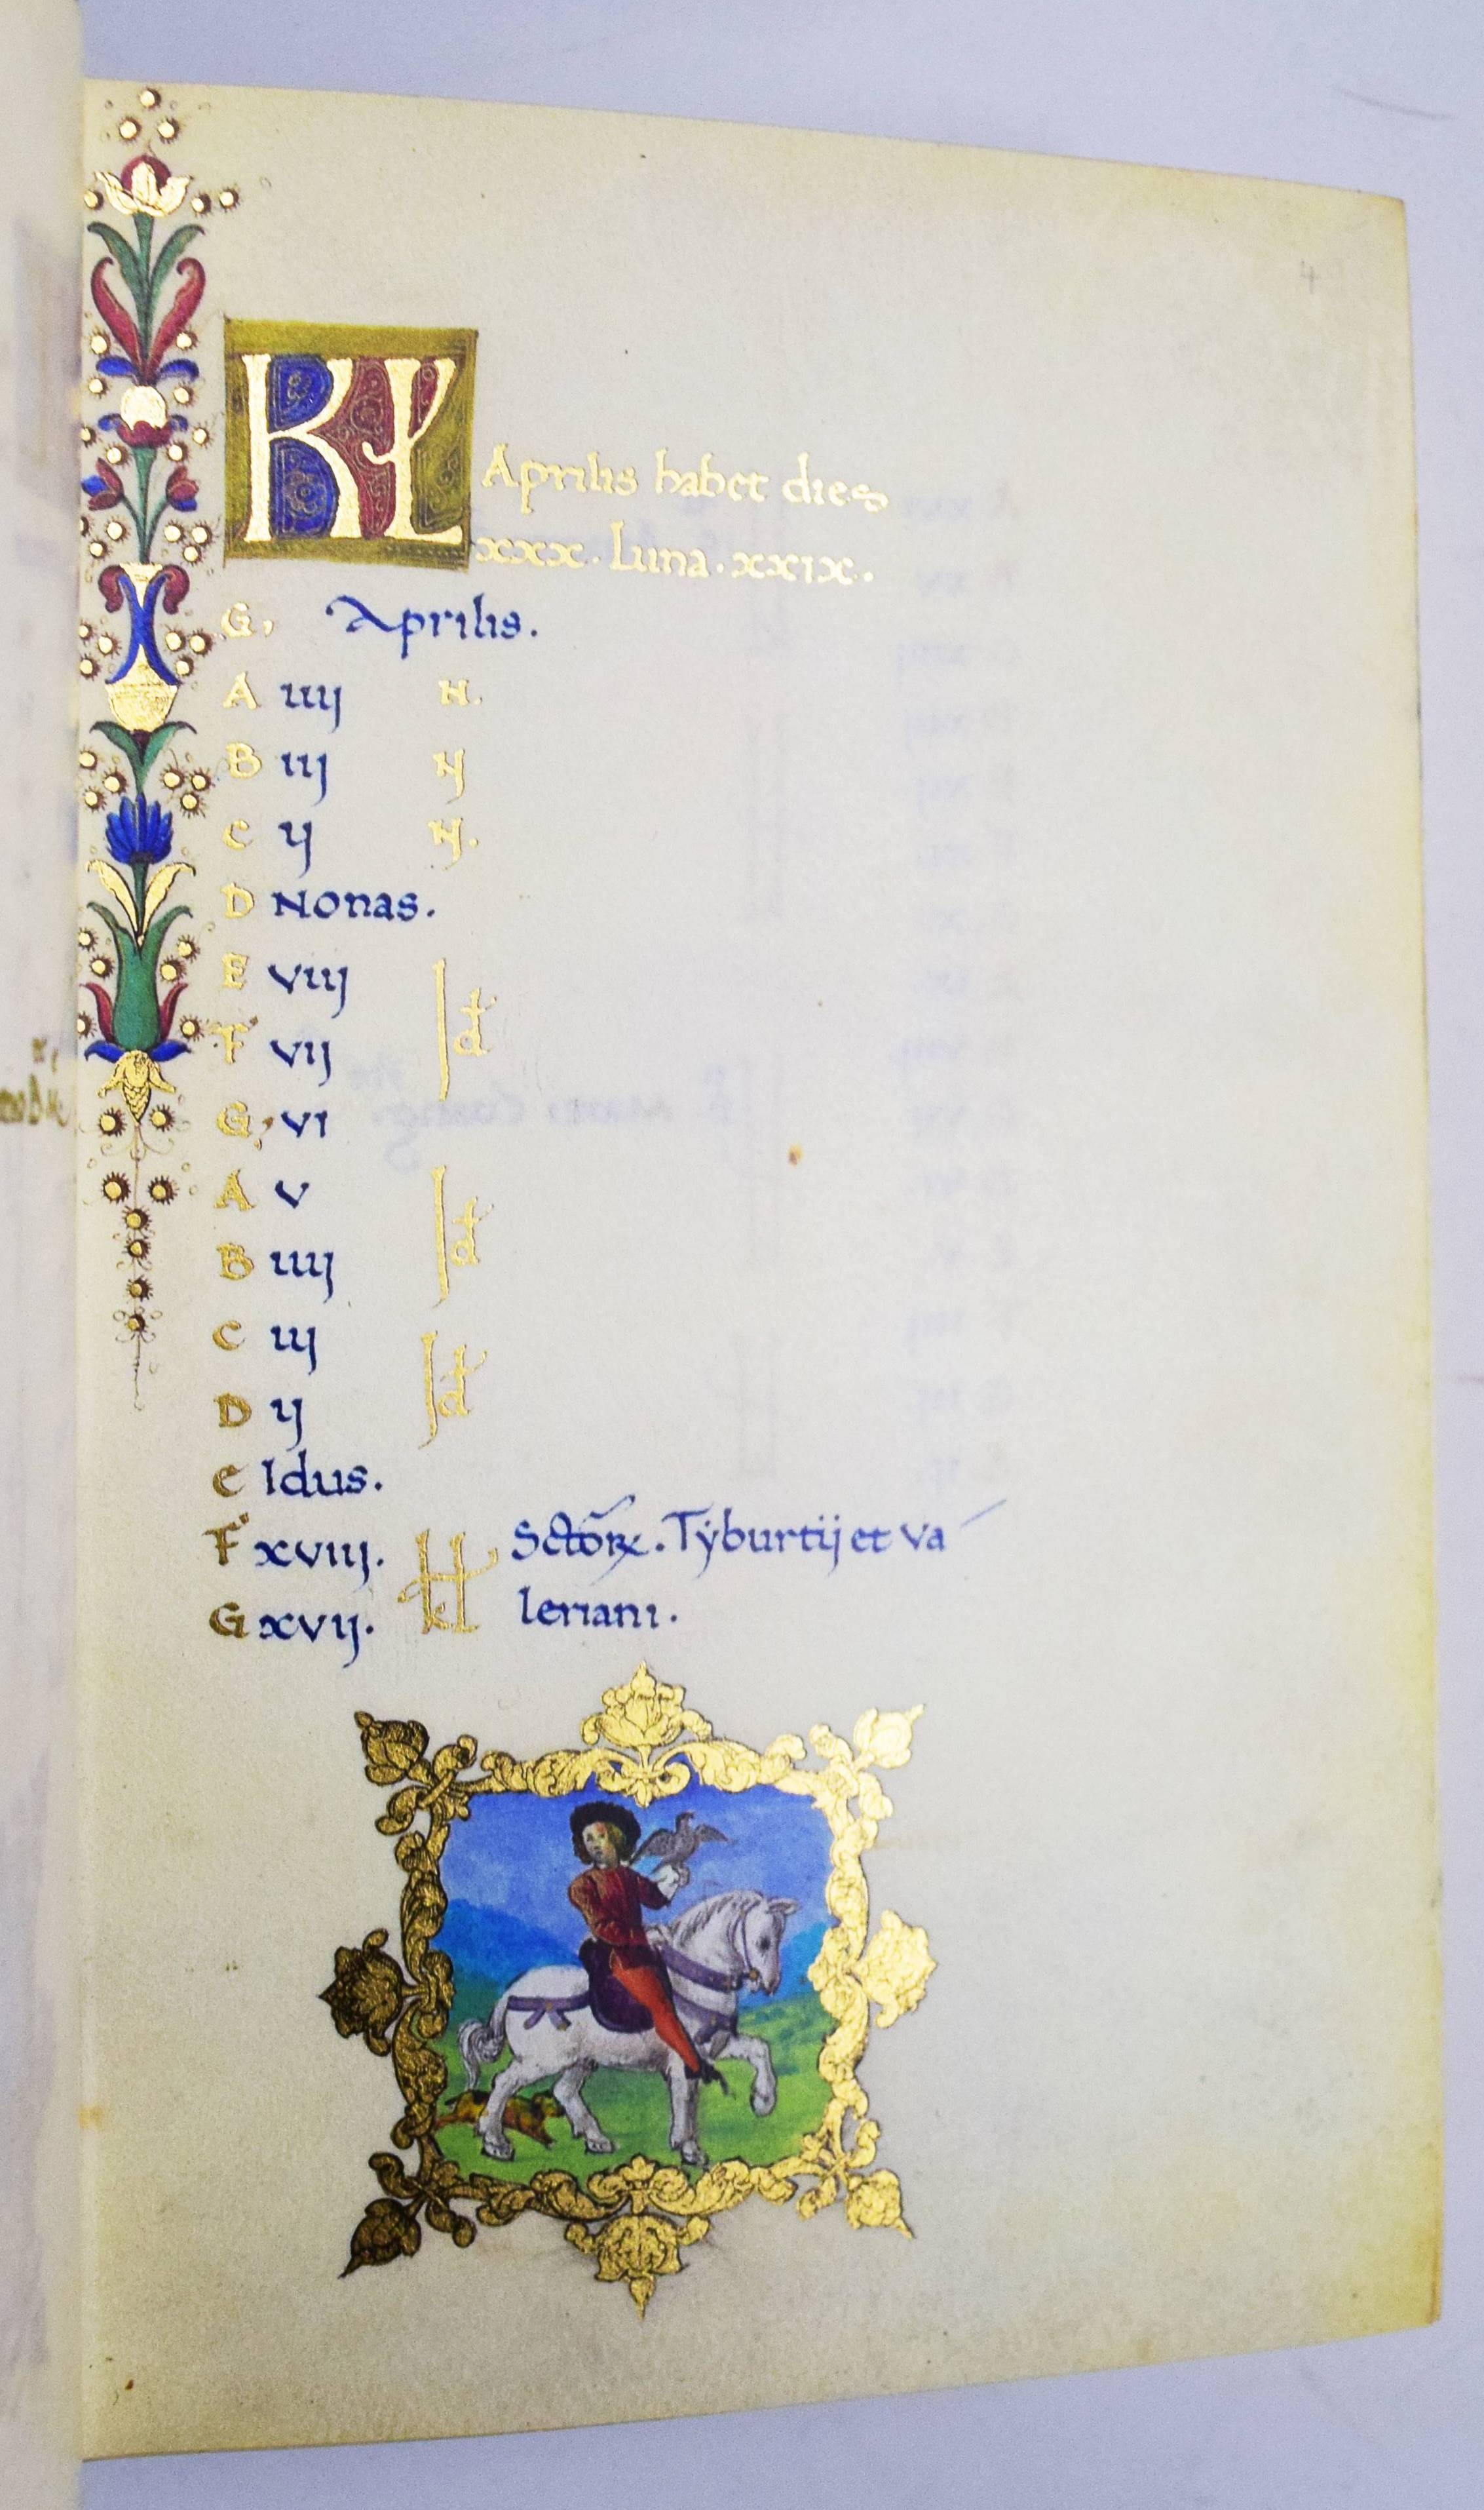 4
KL Aprilis habet dies
xxx. Luna. xxix.
G, Aprilis.
A iiij N.
B iij N
C ij N.
D Nonas.
E viij Id
F vij
G, vi
A v Id
B iiij
C iij Id
D ij
E Idus.
F xviij. kl Sctōꝝ. Tÿburtij et Va
G xvij. leriani.